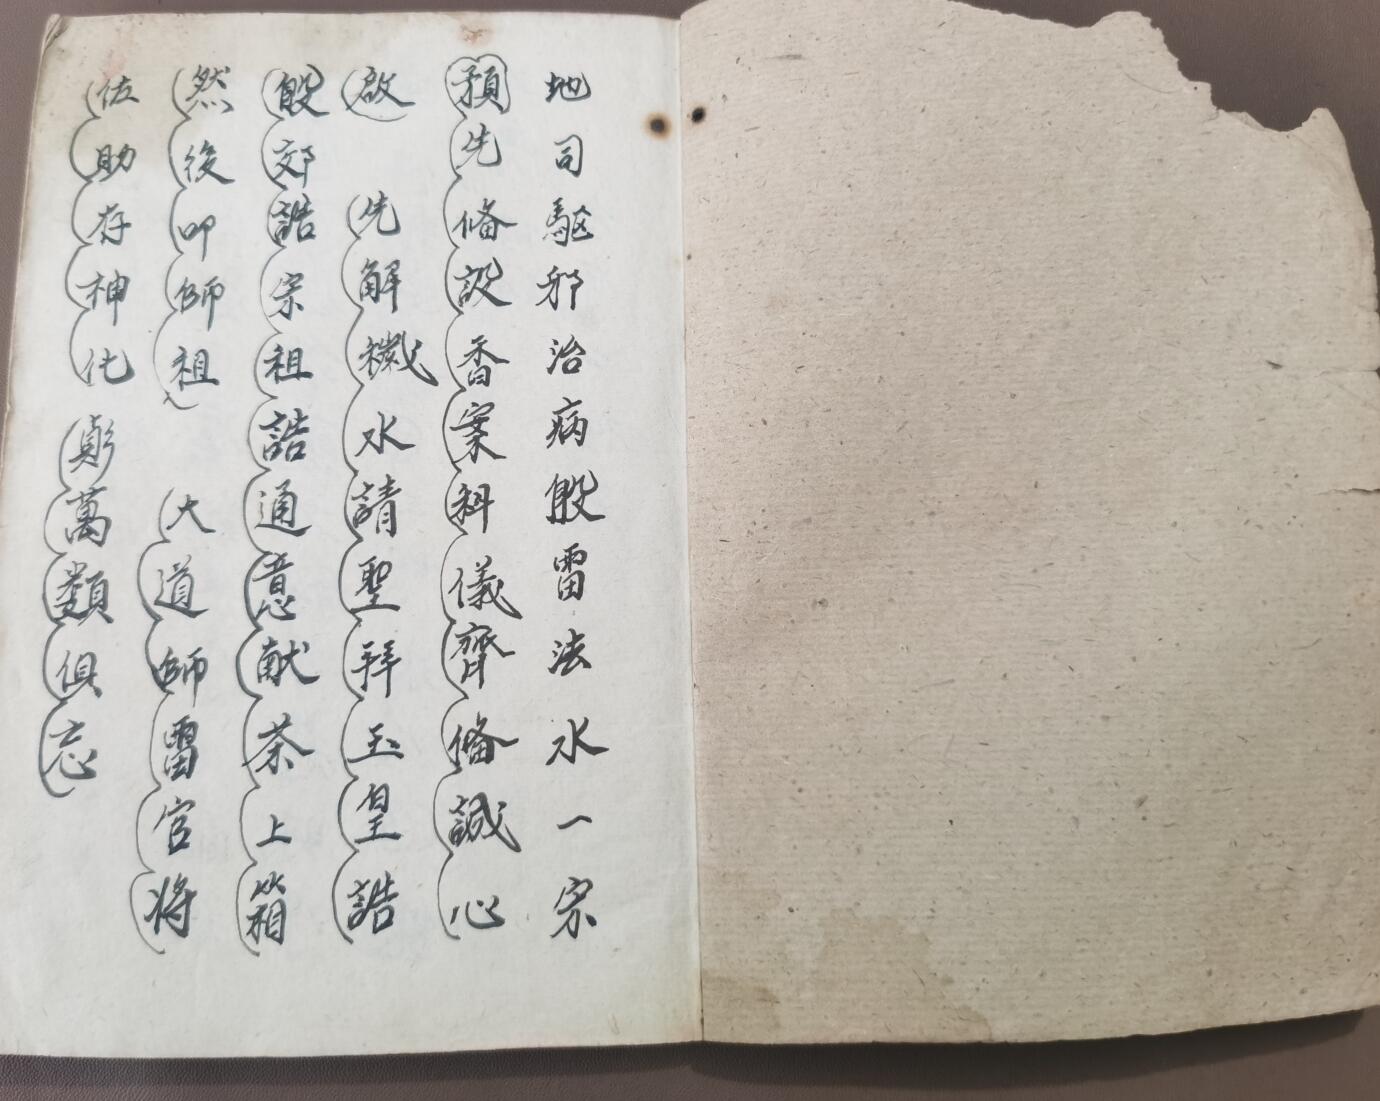 地司驅邪治病殷雷法水一宗
預先俻設香案科儀齊俻誠心
啟 先解穢水請聖拜玉皇誥
殷郊誥宗祖誥通意献茶上箱
然後叩師祖 大道師雷官将
佐助存神化 萬類俱忘